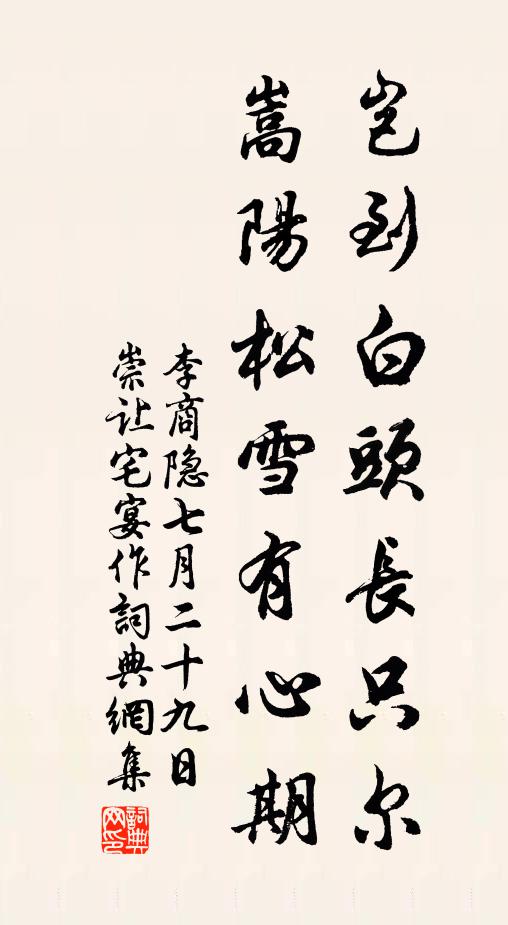 岂到白頭長只尔
嵩陽松雪有心期
李商隐七月二十九日
崇让宅宴作詞典網集
詞典
网印